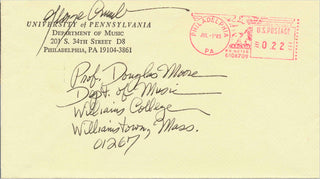 George Crumb
UNIVERSITY of PENNSYLVANIA
DEPARTMENT OF MUSIC
201 S. 34TH STREET D8
PHILADELPHIA, PA 19104-3861
PHILADELPHIA
PA
U.S. POSTAGE
0.22
Prof. Douglas Moore
Dept. of Music
Williams College
Williamstown, Mass.
01267